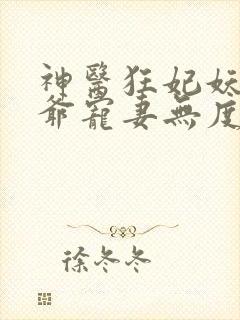 神醫狂妃妖
爺寵妻無度
徐冬冬